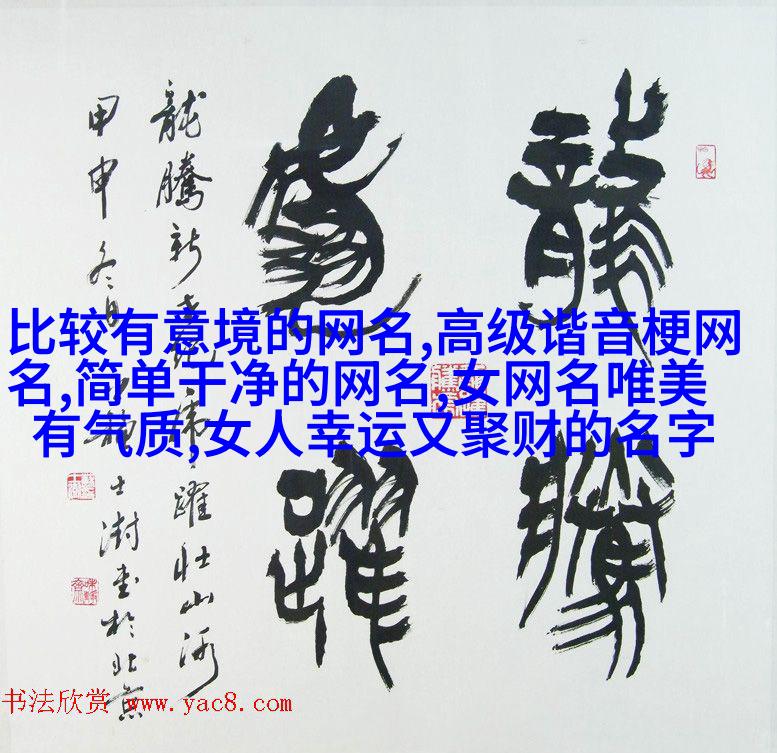 龍騰
虎躍
龍騰新 躍壯山河
甲申冬月 士澍書於北京
比较有意境的网名,高级谐音梗网
名,简单干净的网名,女网名唯美
有气质,女人幸运又聚财的名字
书法欣赏 www.yac8.com